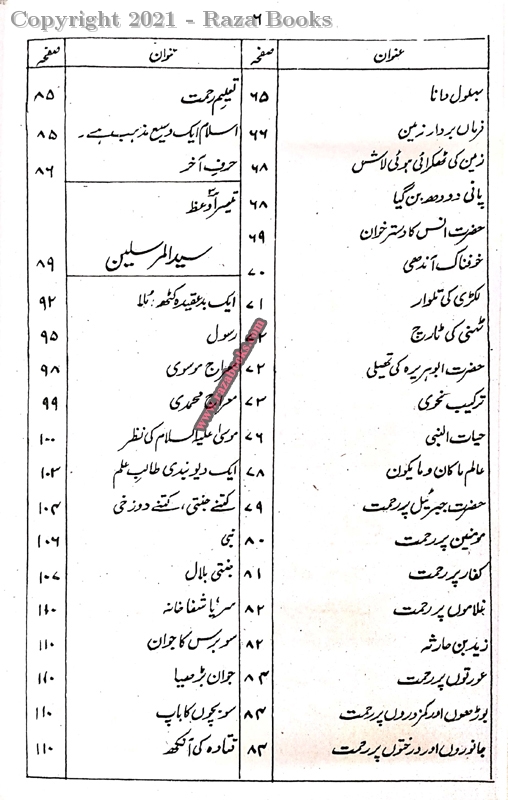 Copyright 2021 - Raza Books
۶
عنوان صفحہ
بہلول دانا ۶۵
فرماں بردار زمین ۶۶
زمین کی ٹھکرائی ہوئی لاش ۶۸
پانی دودھ بن گیا ۶۸
حضرت انس کا دسترخوان ۶۹
خوفناک آندھی ۷۰
لکڑی کی تلوار ۷۱
ٹہنی کی ٹارچ ۷۲
حضرت ابوہریرہ کی تھیلی ۷۲
ترکیب نحوی ۷۳
حیات النبی ۷۶
عالم ماکان و مایکون ۷۸
حضرت جبرئیل پر رحمت ۷۹
مومنین پر رحمت ۸۰
کفار پر رحمت ۸۱
غلاموں پر رحمت ۸۲
زید بن حارثہ ۸۲
عورتوں پر رحمت ۸۴
بوڑھوں اور کمزوروں پر رحمت ۸۴
جانوروں اور درختوں پر رحمت ۸۴
عنوان صفحہ
تعلیم رحمت ۸۵
اسلام ایک وسیع مذہب ہے۔ ۸۵
حرف آخر ۸۶
تیسرا وعظ
سید المرسلین ۸۹
ایک بدعقیدہ کٹھ ملا ۹۲
رسول ۹۵
معراج موسوی ۹۸
معراج محمدی ۹۹
موسیٰ علیہ السلام کی نظر ۱۰۰
ایک دیوبندی طالب علم ۱۰۳
کتنے جنتی، کتنے دوزخی ۱۰۴
نبی ۱۰۶
جنتی بلال ۱۰۷
سراپا شفا خانہ ۱۱۰
سو برس کا جوان ۱۱۰
جوان بڑھیا ۱۱۰
سو بچوں کا باپ ۱۱۰
قتادہ کی آنکھ ۱۱۰
www.razabooks.com